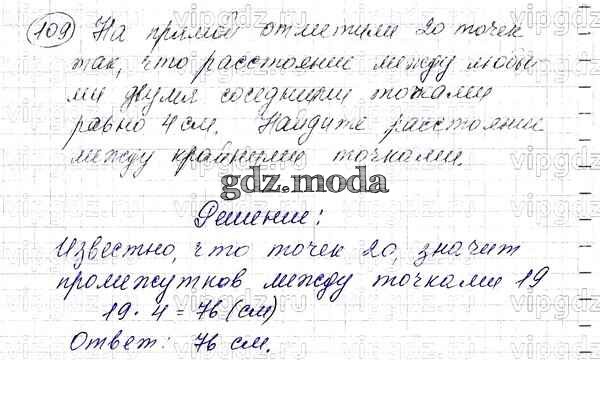 109 На прямой отметили 20 точек
так, что расстояние между любы
ми двумя соседними точками
равно 4 см. Найдите расстояние
между крайними точками.
gdz.moda
Решение:
Известно, что точек 20, значит
промежутков между точками 19
19 · 4 = 76 (см)
Ответ: 76 см.